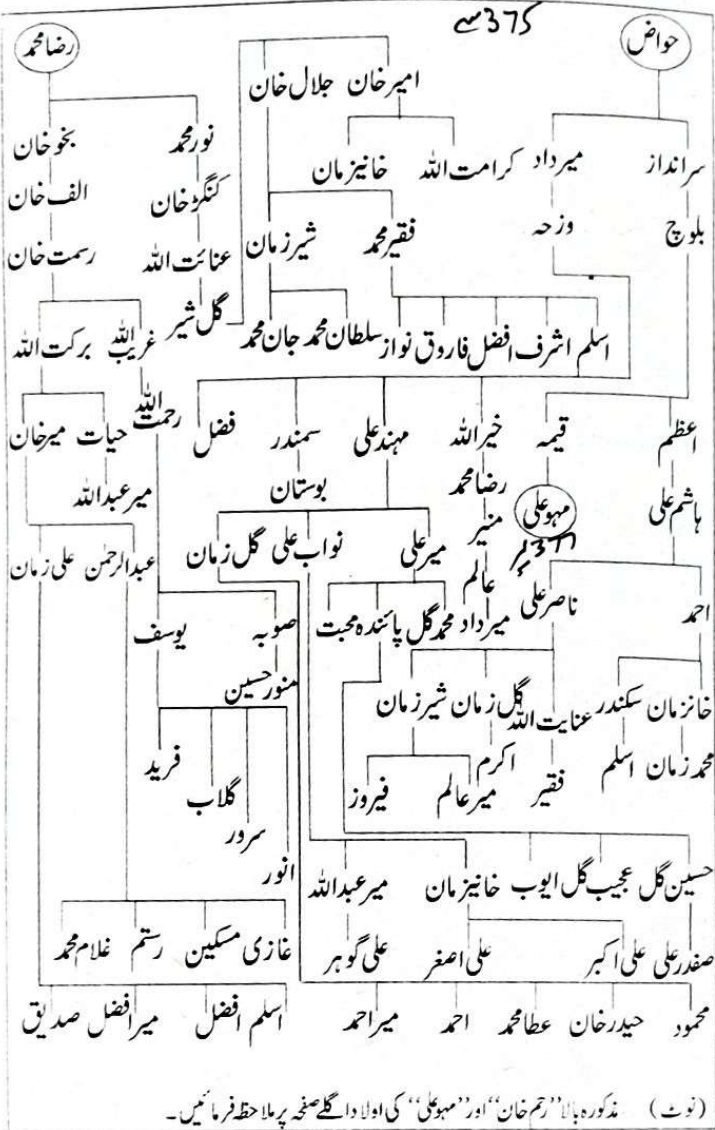 375 سے
حواض رضا محمد
امیر خان جلال خان
سرانداز میرداد کرامت اللہ خانیزمان نور محمد بخو خان
بلوچ وزحہ فقیر محمد شیر زمان کنگڑ خان الف خان
عنائت اللہ رسمت خان
اسلم اشرف افضل فاروق نواز سلطان محمد جان محمد گل شیر غریب اللہ برکت اللہ
اعظم قیمہ خیر اللہ مہند علی سمندر فضل رحمت اللہ حیات میر خان
ہاشم علی مہو علی رضا محمد بوستان میر عبداللہ
منیر میر علی نواب علی گل زمان عبدالرحمٰن علی زمان
عالم
احمد ناصر علی میرداد محمد گل پائندہ محبت صوبہ یوسف
خانزمان سکندر عنایت اللہ گل زمان شیر زمان منور حسین
محمد زمان اسلم فقیر اکرم میر عالم فیروز فرید
گلاب
سرور
حسین گل عجیب گل ایوب خانیزمان میر عبداللہ انور
صفدر علی علی اکبر علی اصغر علی گوہر غازی مسکین رستم غلام محمد
محمود حیدر خان عطا محمد احمد میر احمد اسلم افضل میر افضل صدیق
(نوٹ) مذکورہ بالا "رحم خان" اور "مہو علی" کی اولاد اگلے صفحہ پر ملاحظہ فرمائیں۔